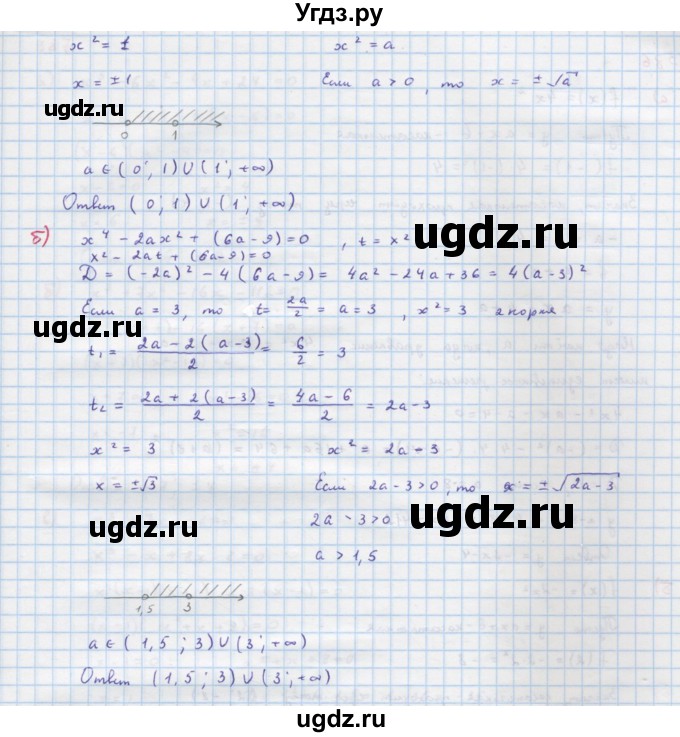 Угдз.ру
x² = 1 x² = a
x = ±1 Если a > 0, то x = ±√a
ugdz.ru
0 1
a ∈ (0; 1) ∪ (1; +∞)
Ответ (0; 1) ∪ (1; +∞)
ugdz.ru ugdz.ru
б) x⁴ - 2ax² + (6a-9) = 0, t = x²
x² - 2at + (6a-9) = 0
D = (-2a)² - 4(6a-9) = 4a² - 24a + 36 = 4(a-3)²
Если a = 3, то t = 2a/2 = a = 3, x² = 3 2 корня
ugdz.ru ugdz.ru
t₁ = (2a - 2(a-3))/2 = 6/2 = 3
t₂ = (2a + 2(a-3))/2 = (4a-6)/2 = 2a-3
x² = 3 x² = 2a-3
x = ±√3 Если 2a-3>0, то x = ±√(2a-3)
ugdz.ru ugdz.ru
2a - 3 > 0
a > 1,5
1,5 3
a ∈ (1,5; 3) ∪ (3; +∞)
Ответ (1,5; 3) ∪ (3; +∞)
ugdz.ru ugdz.ru
ugdz.ru